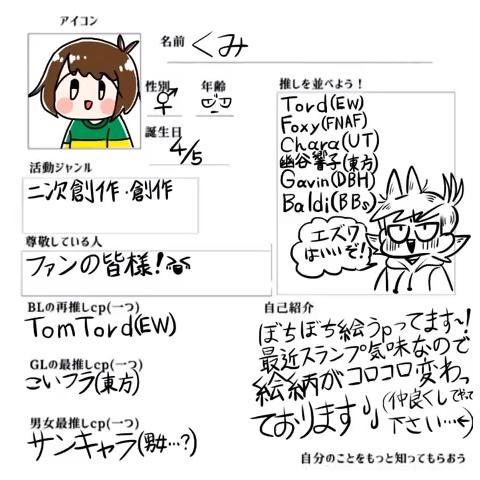 アイコン
名前 くみ
性別
年齢
誕生日
4/5
推しを並べよう!
Tord(EW)
Foxy(FNAF)
Chara(UT)
幽谷響子(東方)
Gavin(DBH)
Baldi(BBs)
エズワ
はいいぞ!
活動ジャンル
二次創作・創作
尊敬している人
ファンの皆様!
BLの再推しcp(一つ)
TomTord(EW)
GLの最推しcp(一つ)
こいフラ(東方)
男女最推しcp(一つ)
サンキャラ(男女…?)
自己紹介
ぼちぼち絵うpってます〜!
最近スランプ気味なので
絵柄がコロコロ変わっ
ております
(仲良くしてやって
下さい…←)
自分のことをもっと知ってもらおう